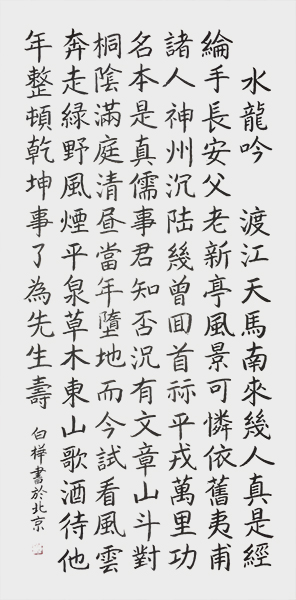 水龍吟 渡江天馬南來幾人真是經
綸手長安父老新亭風景可憐依舊夷甫
諸人神州沉陸幾曾囬首祘平戎萬里功
名本是真儒事君知否況有文章山斗對
桐陰滿庭清晝當年墮地而今試看風雲
奔走緑野風煙平泉草木東山歌酒待他
年整頓乾坤事了為先生壽
白樺書於北京